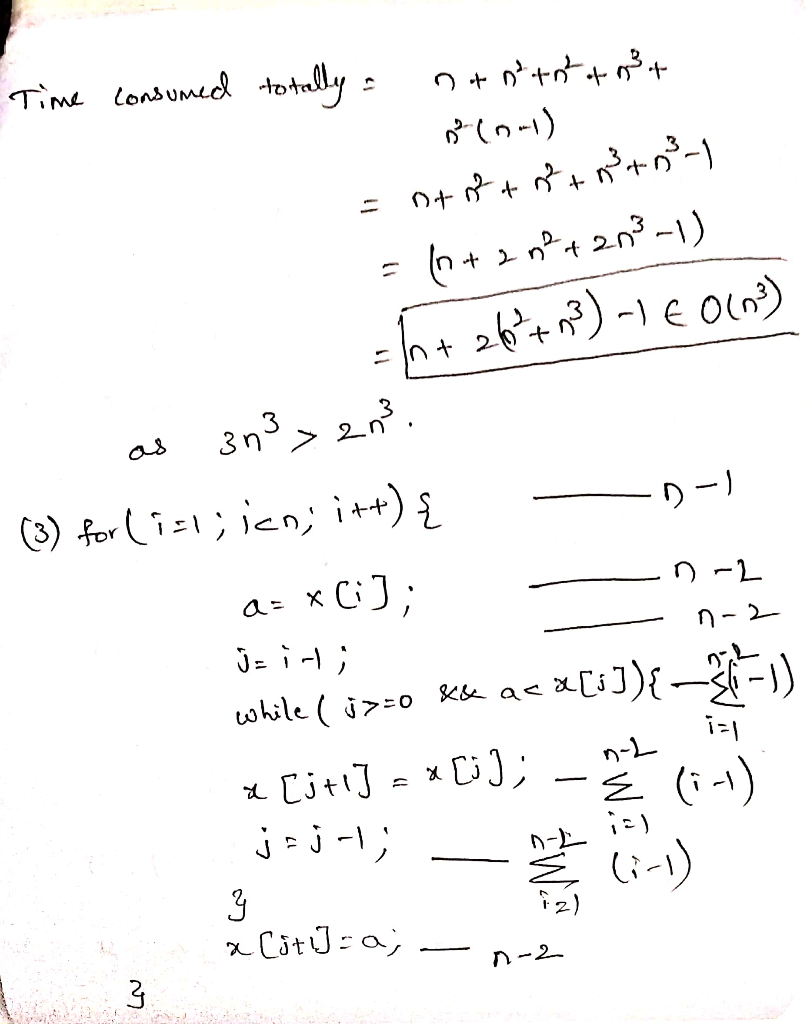 Time consumed totally = n + n² + n² + n³ +
n²(n-1)
= n + n² + n² + n³ + n³ - 1
= (n + 2n² + 2n³ - 1)
= n + 2(n² + n³) - 1 ∈ O(n³)
as 3n³ > 2n³.
(3) for(i=1; i<n; i++) { — n-1
a = x[i]; — n-2
j = i-1; — n-2
while( j>=0 && a< x[j]){ — Σ_{i=1}^{n-2} (i-1)
x[j+1] = x[j]; — Σ_{i=1}^{n-2} (i-1)
j = j-1; — Σ_{i=1}^{n-2} (i-1)
}
x[j+1] = a; — n-2
}